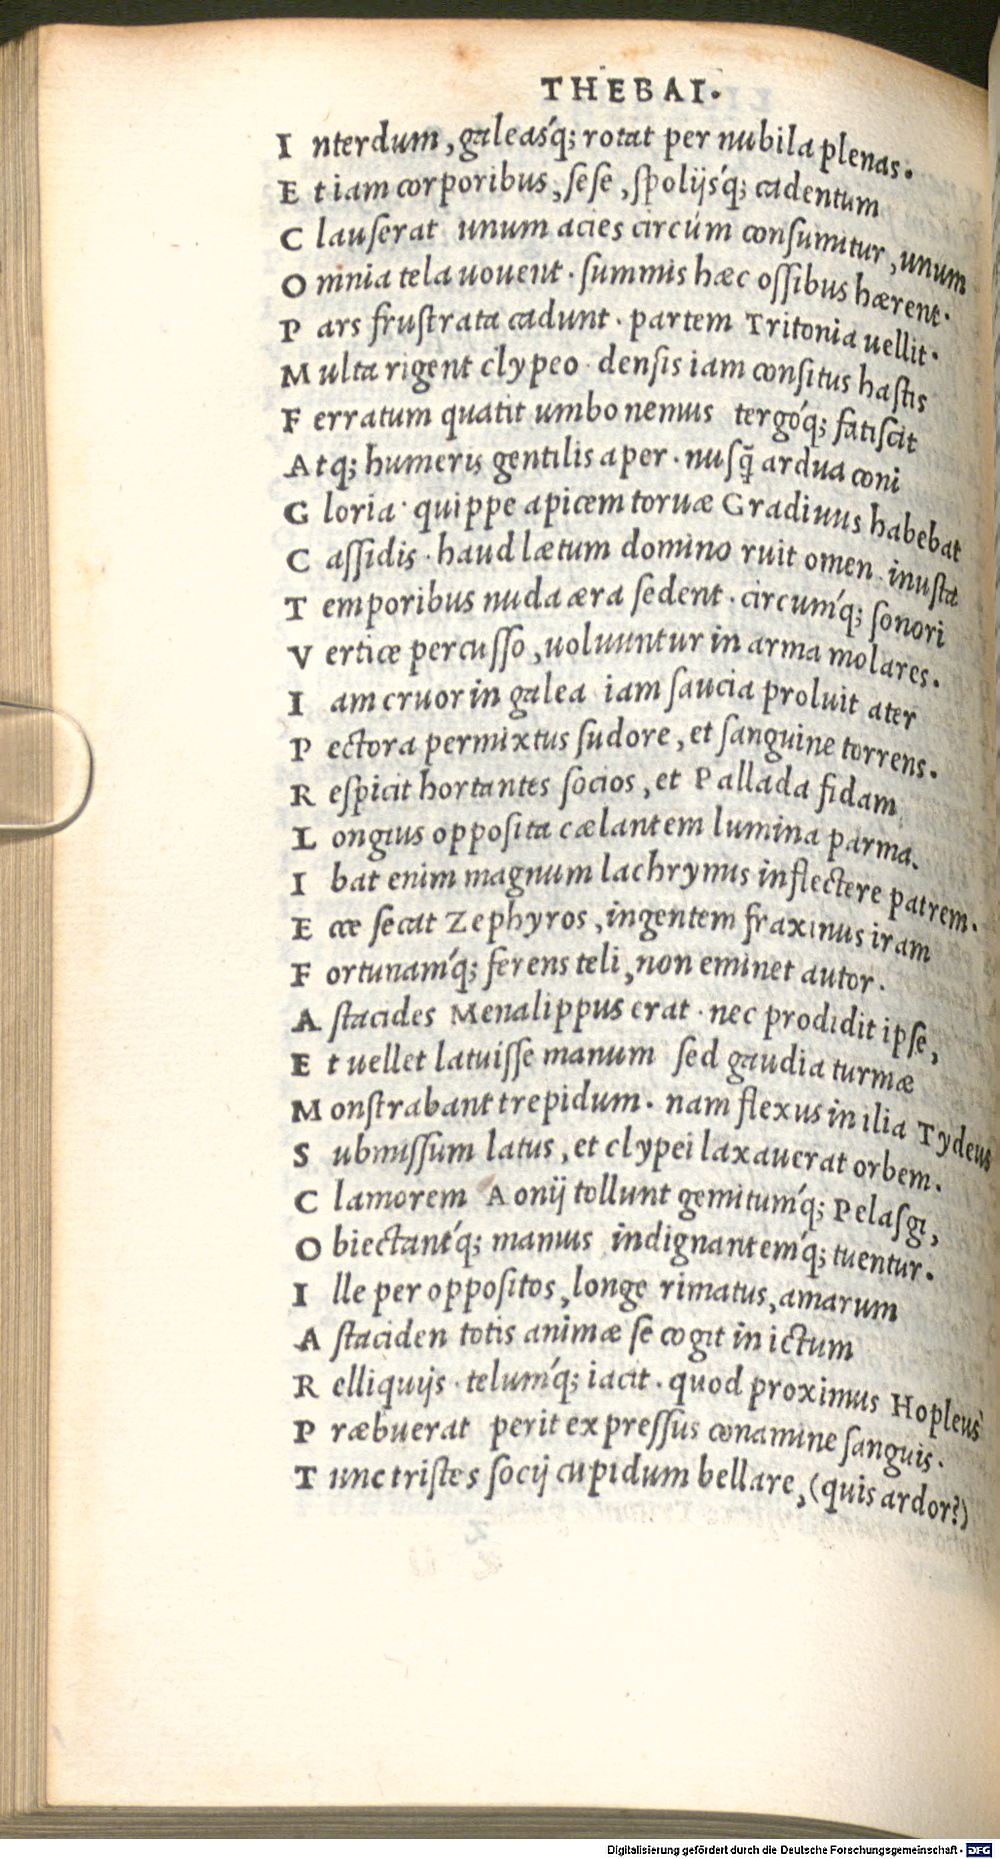 THEBAI.
I nterdum, galeásq; rotat per nubila plenas.
E t iam corporibus, sese, spolijsq́; cadentum
C lauserat unum acies circúm consumitur, unum
O mnia tela uouent. summis hæc ossibus hærent.
P ars frustrata cadunt. partem Tritonia uellit.
M ulta rigent clypeo. densis iam consitus hastis
F erratum quatit umbo nemus tergóq; fatiscit
A tq; humeris gentilis aper. nusq̃ ardua coni
G loria. quippe apicem toruæ Gradiuus habebat
C assidis. haud lætum domino ruit omen. inusta
T emporibus nuda æra sedent. circumq́; sonori
V ertice percusso, uoluuntur in arma molares.
I am cruor in galea iam saucia proluit ater
P ectora permixtus sudore, et sanguine torrens.
R espicit hortantes socios, et Pallada fidam
L ongius opposita cælantem lumina parma.
I bat enim magnum lachrymis inflectere patrem.
E cce secat Zephyros, ingentem fraxinus iram
F ortunamq́; ferens teli, non eminet autor.
A stacides Menalippus erat. nec prodidit ipse,
E t uellet latuisse manum sed gaudia turmæ
M onstrabant trepidum. nam flexus in ilia Tydeus
S ubmissum latus, et clypei laxauerat orbem.
C lamorem Aonij tollunt gemitumq́; Pelasgi,
O biectantq́; manus indignantemq́; tuentur.
I lle per oppositos, longe rimatus, amarum
A staciden totis animæ se cogit in ictum
R elliquijs. telumq́; iacit. quod proximus Hopleus
P ræbuerat perit expressus conamine sanguis.
T unc tristes socij cupidum bellare, (quis ardor?)
Digitalisierung gefördert durch die Deutsche Forschungsgemeinschaft - DFG